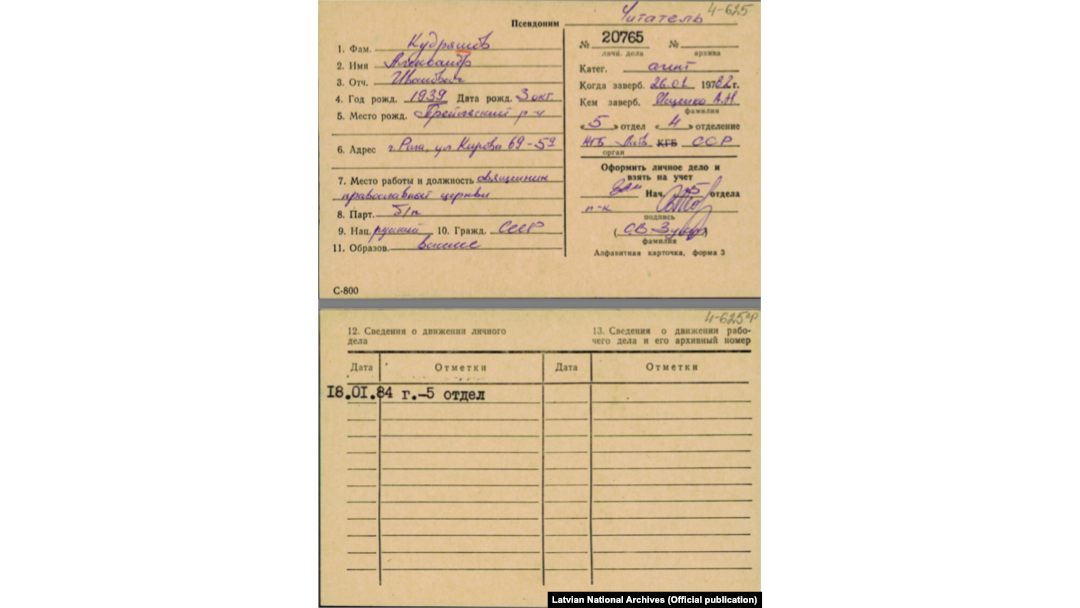 4-625
Псевдоним Читатель
1. Фам. Кудряшов
2. Имя Александр
3. Отч. Иванович
4. Год рожд. 1939 Дата рожд. 3 окт
5. Место рожд. Прейльский р-н
6. Адрес г. Рига, ул Кирова 69-59
7. Место работы и должность священник
православной церкви
8. Парт. б/п
9. Нац. русский 10. Гражд. СССР
11. Образов. высшее
С-800
№ 20765 №
личн. дела архива
Катег. агент
Когда заверб. 26.01 1982 г.
Кем заверб. Яценко А.Н
фамилия
«5» отдел «4» отделение
КГБ Латв КГБ ССР
орган
Оформить личное дело и
взять на учет
Зам Нач. 5 отдела
п-к
подпись
фамилия
Алфавитная карточка, форма 3
4-625 об
12. Сведения о движении личного
дела
13. Сведения о движении рабо-
чего дела и его архивный номер
Дата Отметки Дата Отметки
18.01.84 г.-5 отдел
Latvian National Archives (Official publication)